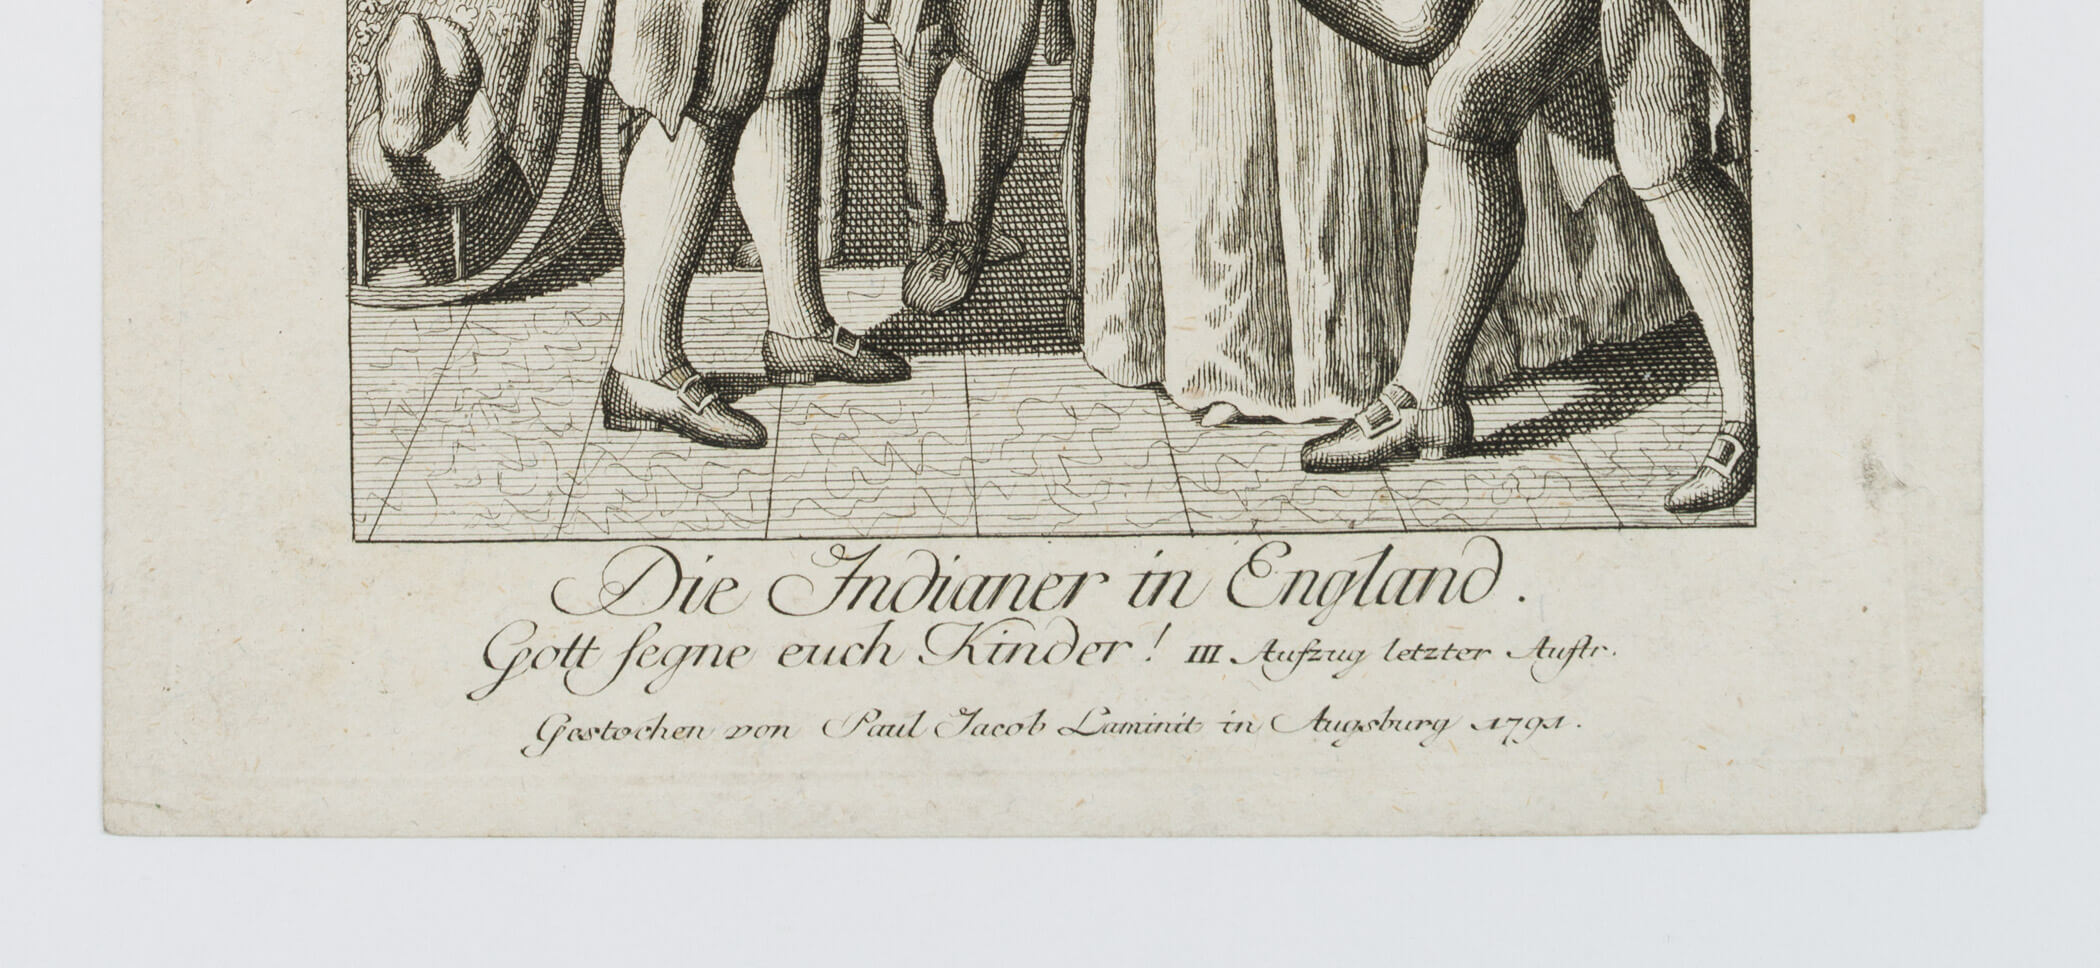 Die Indianer in England.
Gott segne euch Kinder! III Aufzug letzter Auftr.
Gestochen von Paul Jacob Laminit in Augsburg 1791.